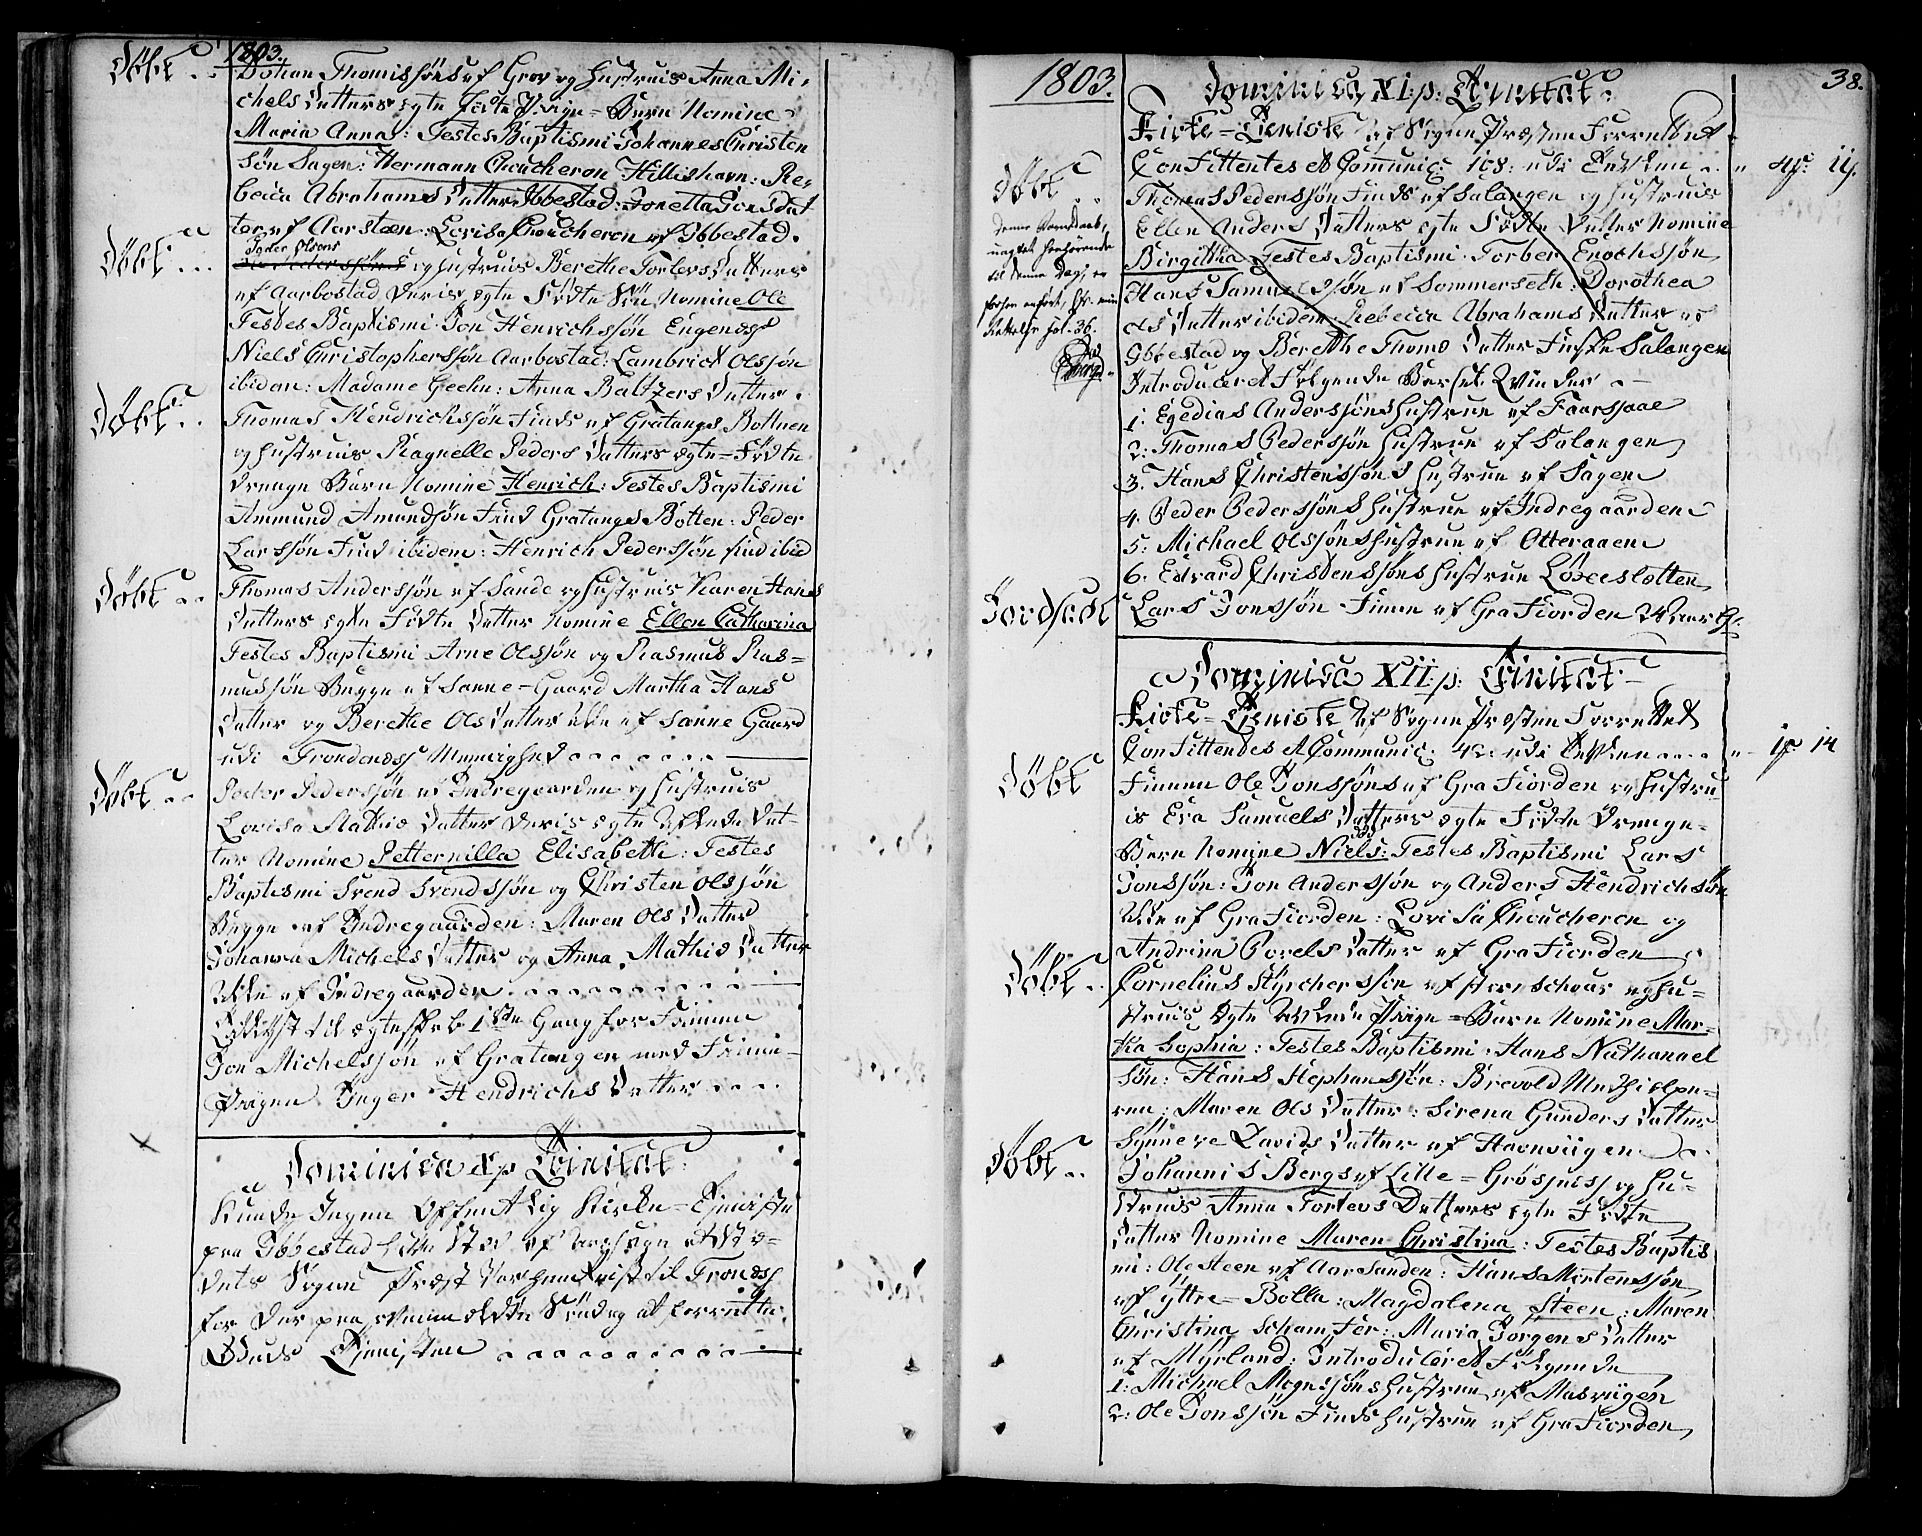 1803.
Døbt
Johan Thomissøns af Grov og Hustrues Anna Mi-
chels Datters ægte fødte Pige-Barn Nomine
Maria Anna: Testes Baptismi Johannes Christen
søn Sagen: Hermann Choucheron Hillishavn: Re-
becca Abrahams Datter Ibbestad: Jonetta Jons dat
ter af Aarstæen: Lovisa Choucheron af Ibbestad.
Døbt
Peder Olsøns
og Hustrues Berethe Torlevs Datters
af Aarbostad Deris ægte Fødte Søn Nomine Ole
Testes Baptismi Jon Henrichssjøn Engenæss
Niels Christophersjøn Aarbostad: Lambrict Olsjøn
ibidan: Madame Geehn: Anna Baltzers Datter.
Døbt
Thomas Hendrichsjøn Finds af Gratangs Bottnen
og Hustrues Ragnelle Peders Datters ægte-Fødte
Drenge Barn Nomine Henrich: Testes Baptismi
Ammund Amundsjøn Find Gratangs Botten: Peder
Larssjøn Find ibidem: Henrich Pedersjøn find ibid
Døbt
Thomas Andersjøn af Sande og Hustrues Karen Hans
Datters ægte Fødte Datter Nomine Ellen Catharina
Testes Baptismi Arne Olsjøn og Rasmus Ras=
mussjøn Begge af Sanne-Gaard Martha Hans
Datter og Berethe Ols Datter Alle af Sanne Gaard
udi Trondenæss Menighed
Døbt
Peder Pedersjøn af Indregaarden og Hustrues
Lovisa Mathis Datter Deris ægte Avlede Dat-
ter Nomine Petternilla Elisabeth: Testes
Baptismi Svend Svendssjøn og Christen Olsjøn
Begge af Indregaarden: Maren Ols Datter
Johanna Michels Datter og Anna Mathis Datter
Alle af Indregaarden
Tillyst til ægteskab 1ste Gang for Finnen
Jon Michelssjøn af Gratangen med Finne-
Pigen Inger Hendrichs Datter
Dominica X p Trinitat:
Kunde Ingen Offentlig Kirke-Tjeniste
paa Ibbestad
Sogne Præst Var til Tronæss
for Der paa Søndag at forrætte
Guds Tjenisten
1803.
38.
Dominica XI: p: Trinitat:
Kirke-Tjeniste af Sogne Præsten Forrettet
Confittentes et Communic: 108: udi Kirken
Døbt
denne Daab,
uagtet henhørende
til denne Dag, er
forhen anført, fol. 36.
Thomas Pedersjøn Finds af Salangen og Hustrues
Ellen Anders Datters ægte Fødte Datter Nomine
Birgitha Testes Baptismi: Torber Enochsjøn
Hans Samuelsjøn af Sommerseth: Dorothea
Ols Datter ibidem: Rebecca Abrahams Datter af
Ibbestad og Berethe Thoms Datter Fuske Salangen
Introduceret Følgende Barsel Qvinder
1: Egedias Andersjøns Hustrue af Faarsjaae
2: Thomas Pedersjøn Hustrue af Salangen
3. Hans Christenssjøns Hustrue af Sagen
4. Peder Pedersjøns Hustrue af Indregaarden
5: Michael Olsjøns Hustrue af Otteraaen
6: Edvard Christensjøns Hustrue Løvesletten
Jordfæstet
Lars Jonssjøn Finne af Gra Fiorden
Dominica XII p: Trinitat
Kirke-Tjeniste af Sogne Præsten Forrettet
Confittendes et Communic: 42: udi Kirken
14
Døbt
Finnen Ole Jonssjøns af Gra Fiorden og Hustru
is Eva Samuels Datters ægte Fødte Drenge-
Barn Nomine Niels: Testes Baptismi Lars
Jonssjøn: Jon Anderssjøn og Anders Hendrichsøn
Alle af Gra Fiorden: Lovisa Choucheron og
Andrina Povels Datter af Gra Fiorden
Døbt
Cornelius Styrchersjøn af og Hu-
strues Ægte Avlede Pige-Barn Nomine Mar-
tha Sophia: Testes Baptismi: Hans Nathanael
søn: Hans Stephansjøn: Brevold
Maren Ols Datter: Sirena Gunders Datter
Synneve Davids Datter af Havnviigen
Døbt
Johannis Bergs af Lille-Grøsnæss og Hu-
strues Anna Torlevs Datters ægte Fødte
Datter Nomine Maren Christina: Testes Baptis
mi: Ole Steen af Aarsanden: Hans Mortenssjøn
af Yttre-Bolla: Magdalena Steen: Maren
Christina Schamfer: Maria Jorgens Datter
af Myrland: Introduceret Følgende
1: Michael Mogensjøns Hustrue af Masviigen
2: Ole Jonssjøn Finds Hustrue af Gra Fiorden